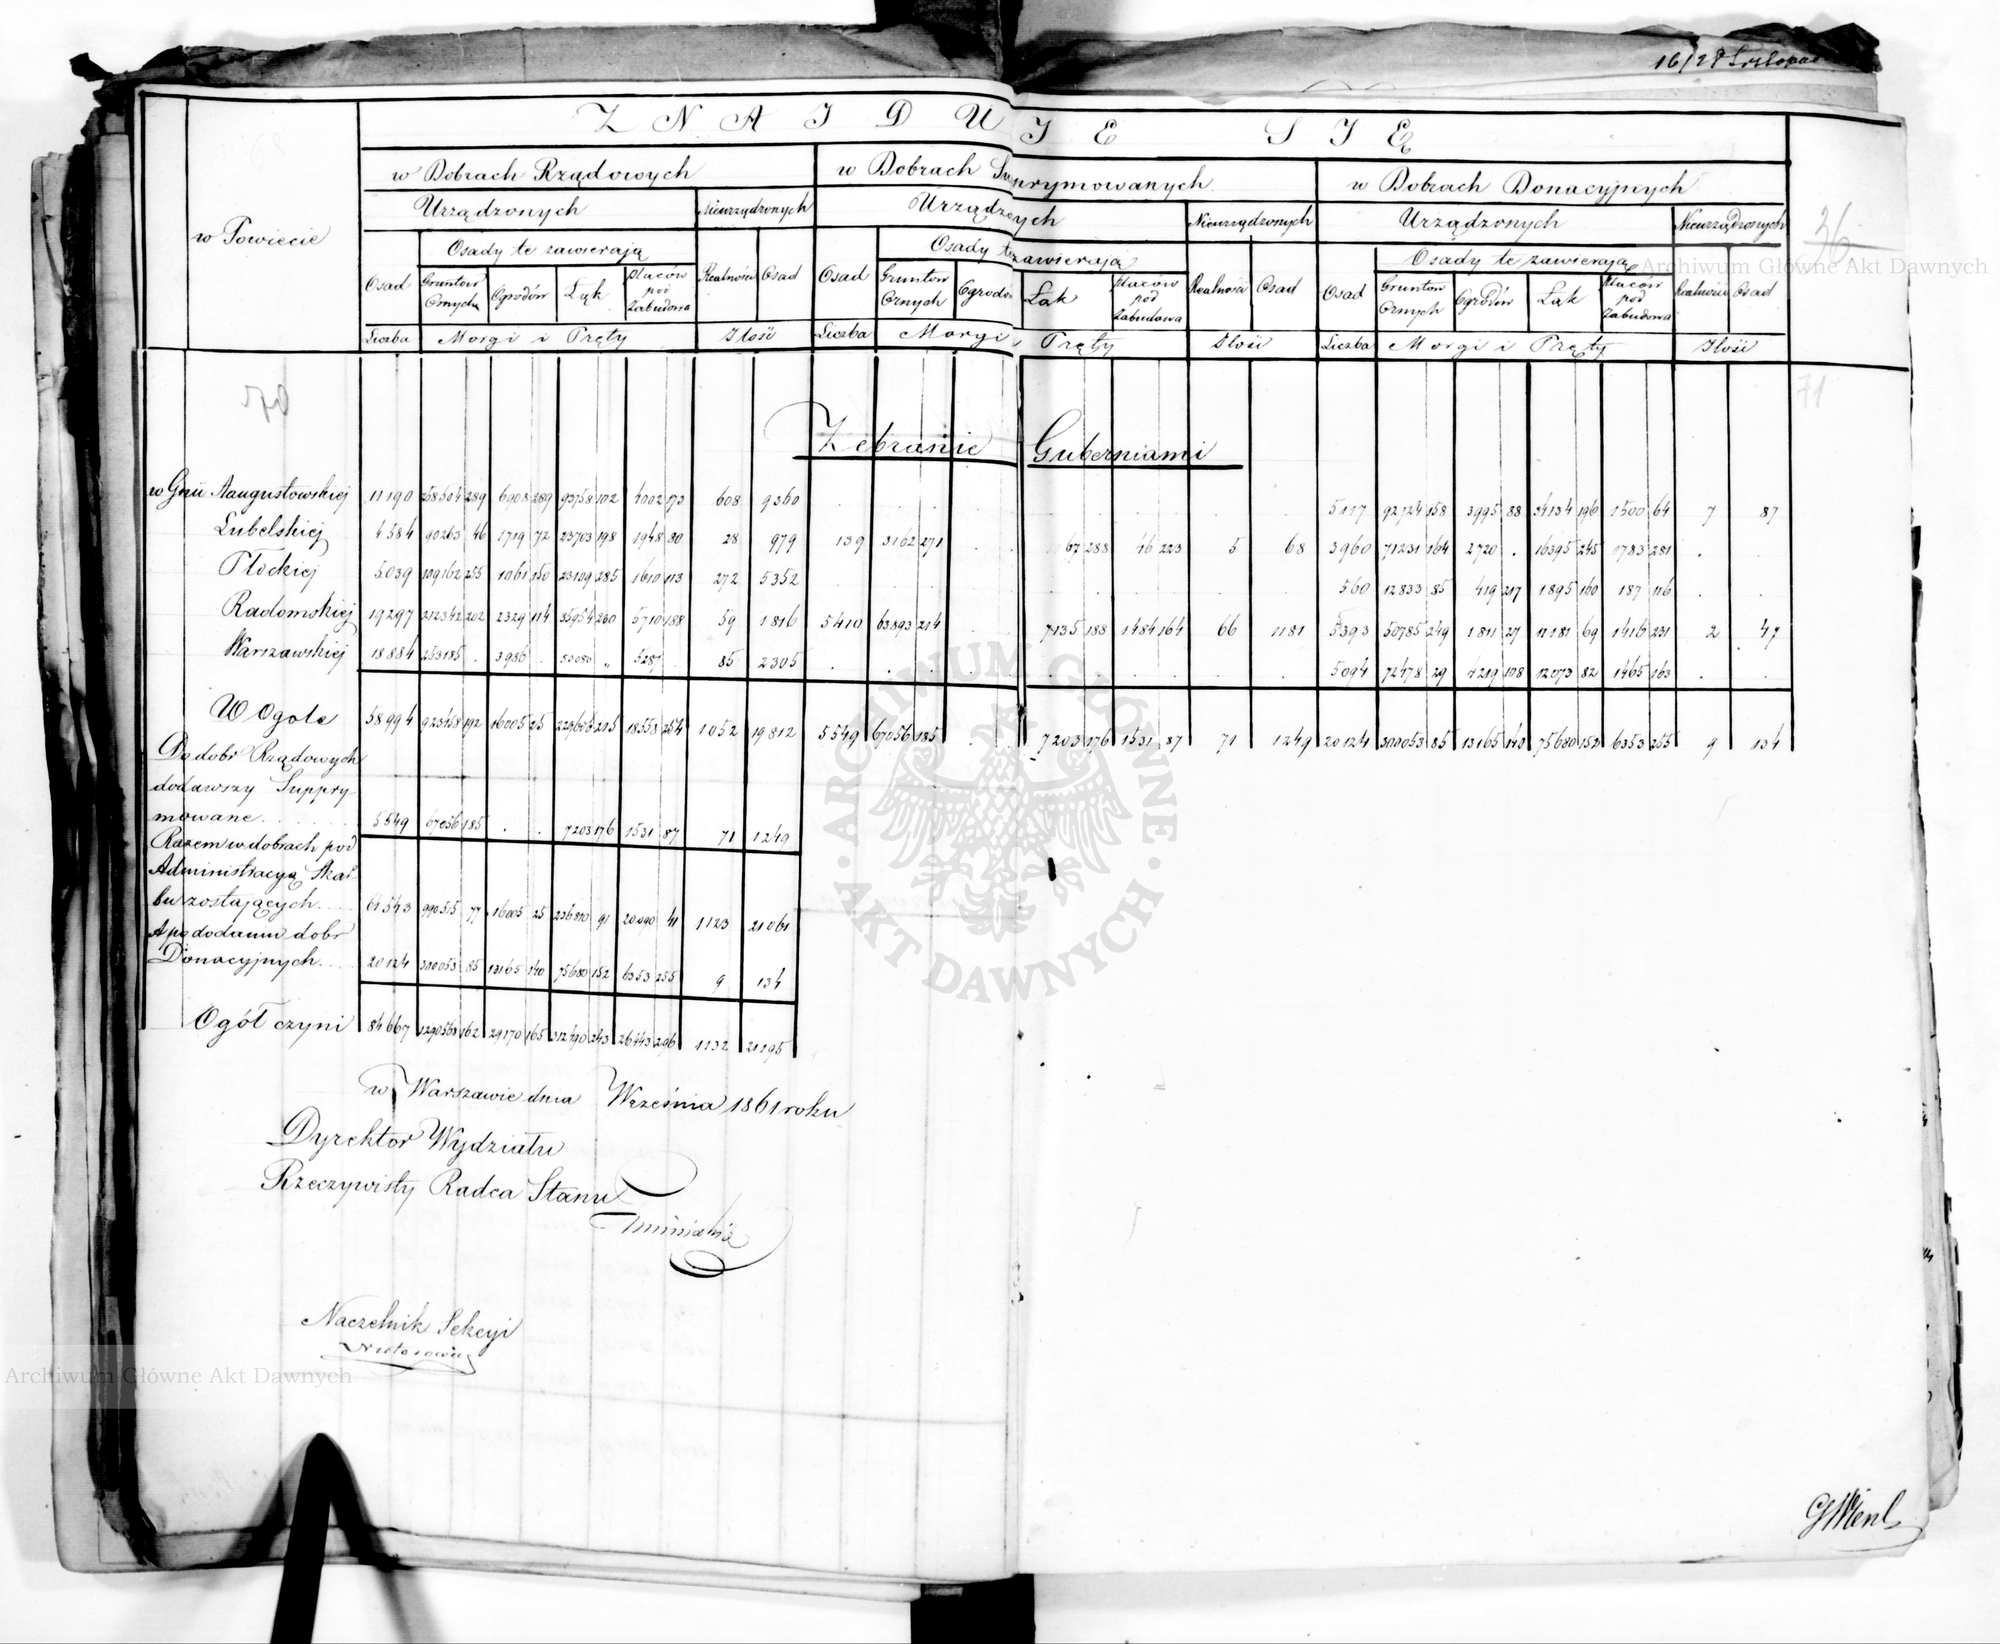 16/28 Listopa
ZNAJDUJE SIĘ
w Powiecie
w Dobrach Rządowych | w Dobrach Supprymowanych | w Dobrach Donacyjnych
Urządzonych | Nieurządzonych | Urządzonych | Nieurządzonych | Urządzonych | Nieurządzonych
36
Osady te zawierają | Osady te zawierają | Osady te zawierają
Osad | Gruntów Ornych | Ogrodów | Łąk | Placów pod Zabudowa | Realności | Osad | Osad | Gruntów Ornych | Ogrodów | Łąk | Placów pod Zabudowa | Realności | Osad | Osad | Gruntów Ornych | Ogrodów | Łąk | Placów pod Zabudowa | Realności | Osad
Liczba | Morgi i Pręty | Ilość | Liczba | Morgi i Pręty | Ilość | Liczba | Morgi i Pręty | Ilość
71
Zebranie Guberniami
w Gnii Aaugustowskiej | 11190 | 258504 289 | 6908 289 | 93758 102 | 4002 173 | 608 | 9360 | 5117 | 92724 158 | 3995 88 | 34134 196 | 1500 64 | 7 | 87
Lubelskiej | 4584 | 90263 46 | 1719 72 | 23703 198 | 1948 80 | 28 | 979 | 139 | 3162 271 | 67 288 | 46 223 | 5 | 68 | 3960 | 71231 164 | 2720 . | 16395 245 | 1783 281
Płockiej | 5039 | 109162 255 | 1061 150 | 23109 285 | 1610 113 | 272 | 5352 | 560 | 12833 85 | 419 217 | 1895 160 | 187 116
Radomskiej | 19297 | 212342 202 | 2329 114 | 35954 230 | 5710 188 | 59 | 1816 | 5410 | 63893 214 | 7135 188 | 1484 164 | 66 | 1181 | 5393 | 50785 249 | 1811 27 | 11181 69 | 1416 231 | 2 | 47
Warszawskiej | 18884 | 253185 . | 3986 . | 53080 „ | 5287 . | 85 | 2305 | 5094 | 72478 29 | 4219 108 | 12073 82 | 1465 163
W Ogóle | 58994 | 923458 192 | 16005 25 | 229606 215 | 18558 254 | 1052 | 19812 | 5549 | 67056 185 | 7203 176 | 1531 87 | 71 | 1249 | 20124 | 300053 85 | 13165 140 | 75680 152 | 6353 255 | 9 | 134
Do dobr Rządowych
dodawszy Suppry-
mowane | 5549 | 67056 185 | . . | 7203 176 | 1531 87 | 71 | 1249
Razem w dobrach pod
Administracyą Skar-
bu zostających | 64543 | 990515 77 | 16005 25 | 236810 91 | 20090 41 | 1123 | 21061
A po dodaniu dobr
Donacyjnych | 20124 | 300053 85 | 13165 140 | 75680 152 | 6353 255 | 9 | 134
Ogół czyni | 84667 | 1290568 162 | 29170 165 | 312490 243 | 26443 296 | 1132 | 21195
w Warszawie dnia Września 1861 roku
Dyrektor Wydziału
Rzeczywisty Radca Stanu
Naczelnik Sekcyi
ARCHIWUM GŁÓWNE · AKT DAWNYCH ·
Archiwum Główne Akt Dawnych
Archiwum Główne Akt Dawnych